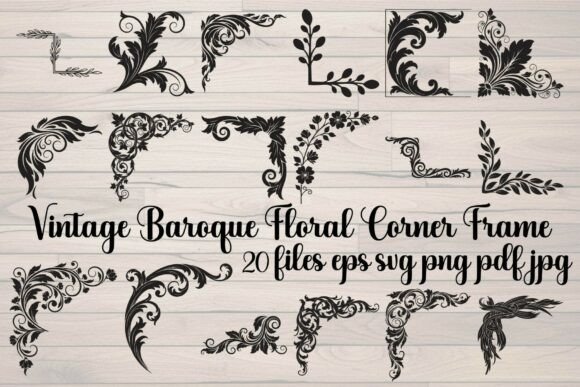 Vintage Baroque Floral Corner Frame
20 files eps svg png pdf jpg